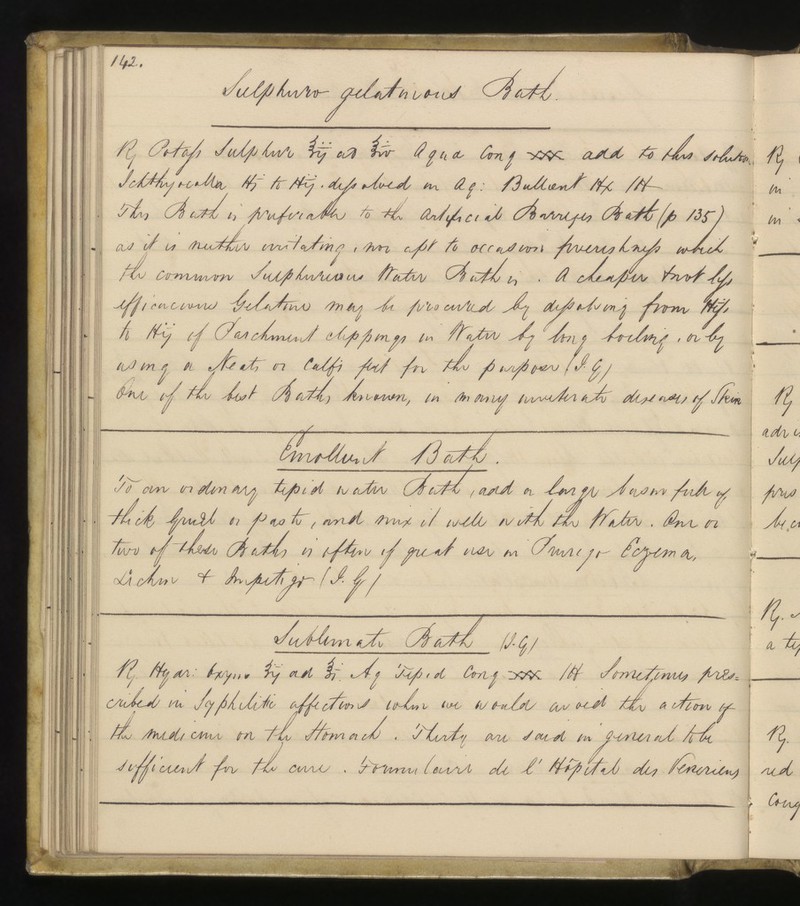 142.
Sulphuro gelatinous Bath.
℞ Potass Sulphur ℥ij ad ℥iv Aqua Cong xxx add to this solution
Ichthyocolla ℔j to ℔ij. dissolved in Aq: Bullient ℔x
This Bath is preferable to the Artificial Barreges Bath (p 135)
as it is neither irritating, nor apt to occasion feverishness which
the common Sulphureous Water Bath is. A cheaper & not less
efficacious Gelatine may be procured by dissolving from ℔fs
to ℔ij of Parchment clippings in Water by long boiling, or by
using a Neats or Calf's feet for the purpose (J.G)
One of the best Baths known, in many inveterate diseases of Skin
Emollient Bath.
To an ordinary tepid water Bath, add a large basin full of
thick Gruel or paste, and mix it well with the Water. One or
two of these Baths is often of great use in Prurigo Eczema,
Lichen & Impetigo (J.G)
Sublimate Bath (J.G)
℞ Hydr: Oxym ʒij ad ℥j. Aq Tepid Cong xxx Sometimes pres=
cribed in Syphilitic affections when we would avoid the action of
the medicine on the Stomach. Thirty are said in general to be
sufficient for the cure. Formulaire de l'Hôpital des Veneriens
℞
in
in
℞
℞.
℞.
red
Cong